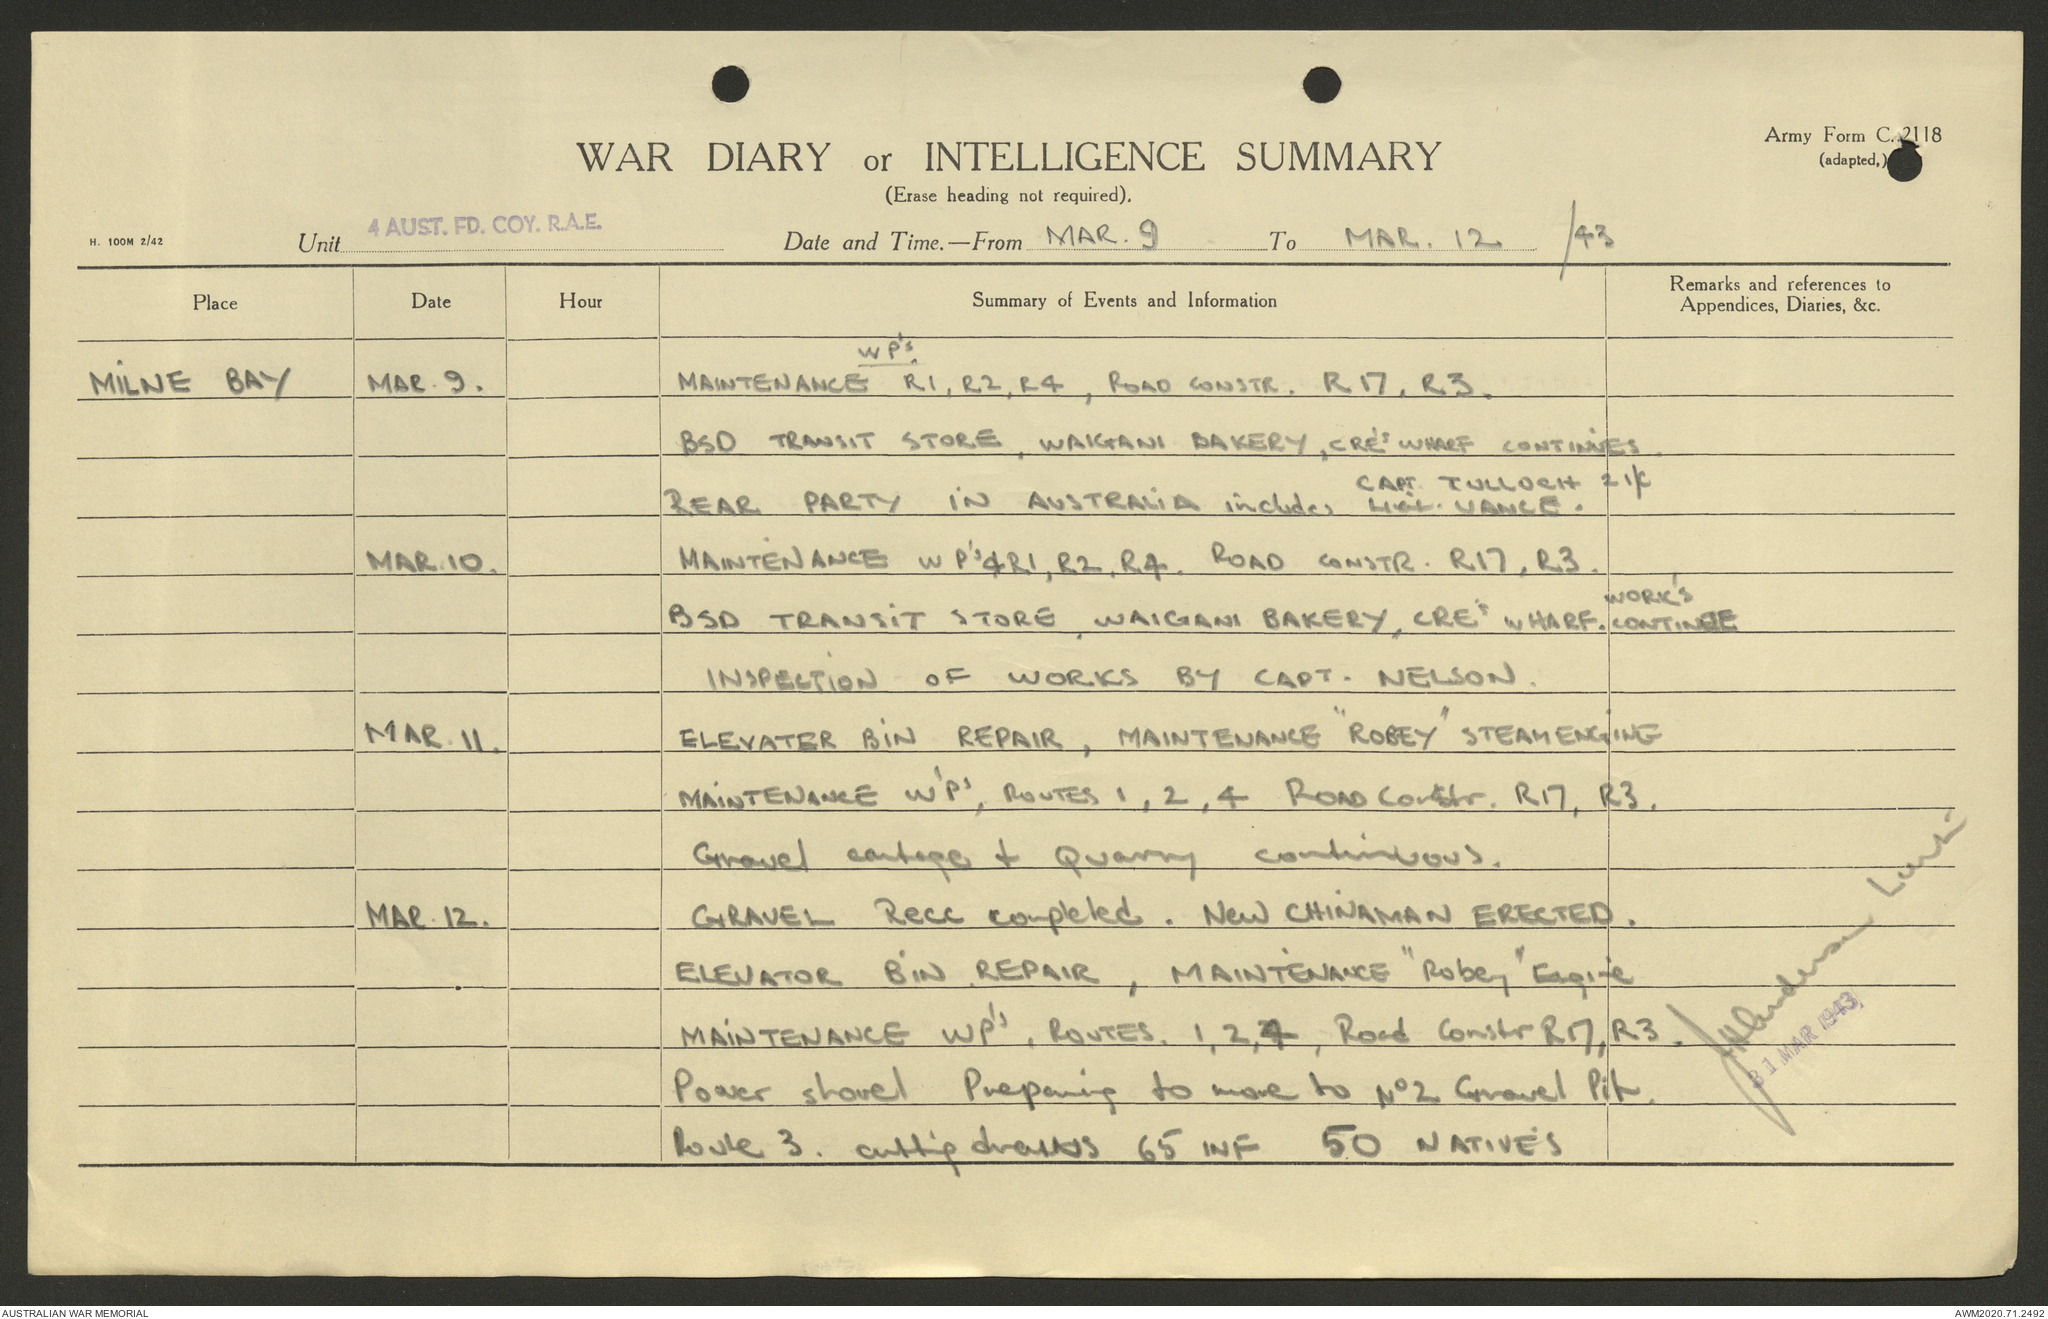 Army Form C. 2118
(adapted,)
WAR DIARY or INTELLIGENCE SUMMARY
(Erase heading not required).
H. 100M 2/42
Unit 4 AUST. FD. COY. R.A.E. Date and Time.—From MAR. 9 To MAR. 12 /43
Place Date Hour Summary of Events and Information Remarks and references to Appendices, Diaries, &c.
WP's
MILNE BAY MAR. 9. MAINTENANCE R1, R2, R4, ROAD CONSTR. R17, R3.
BSD TRANSIT STORE, WAIGANI BAKERY, CRE's WHARF CONTINUES.
CAPT. TULLOCH 2 I/C
REAR PARTY IN AUSTRALIA includes VANCE.
MAR. 10. MAINTENANCE WP's R1, R2, R4. ROAD CONSTR. R17, R3.
WORK'S
BSD TRANSIT STORE, WAIGANI BAKERY, CRE's WHARF. CONTINUE
INSPECTION OF WORKS BY CAPT. NELSON.
MAR. 11. ELEVATER BIN REPAIR, MAINTENANCE "ROBEY" STEAM ENGINE
MAINTENANCE WP's, ROUTES 1, 2, 4 ROAD Constr. R17, R3.
Gravel cartage + Quarry continuous.
MAR. 12. GRAVEL Recc completed. New CHINAMAN ERECTED.
ELEVATOR BIN REPAIR, MAINTENANCE "Robey" Engine
MAINTENANCE WP's, ROUTES. 1, 2, 4, Road Constr R17, R3.
Power shovel Preparing to move to No 2 Gravel Pit.
Route 3. cutting 65 INF 50 NATIVES
31 MAR 1943
AUSTRALIAN WAR MEMORIAL
AWM2020.71.2492